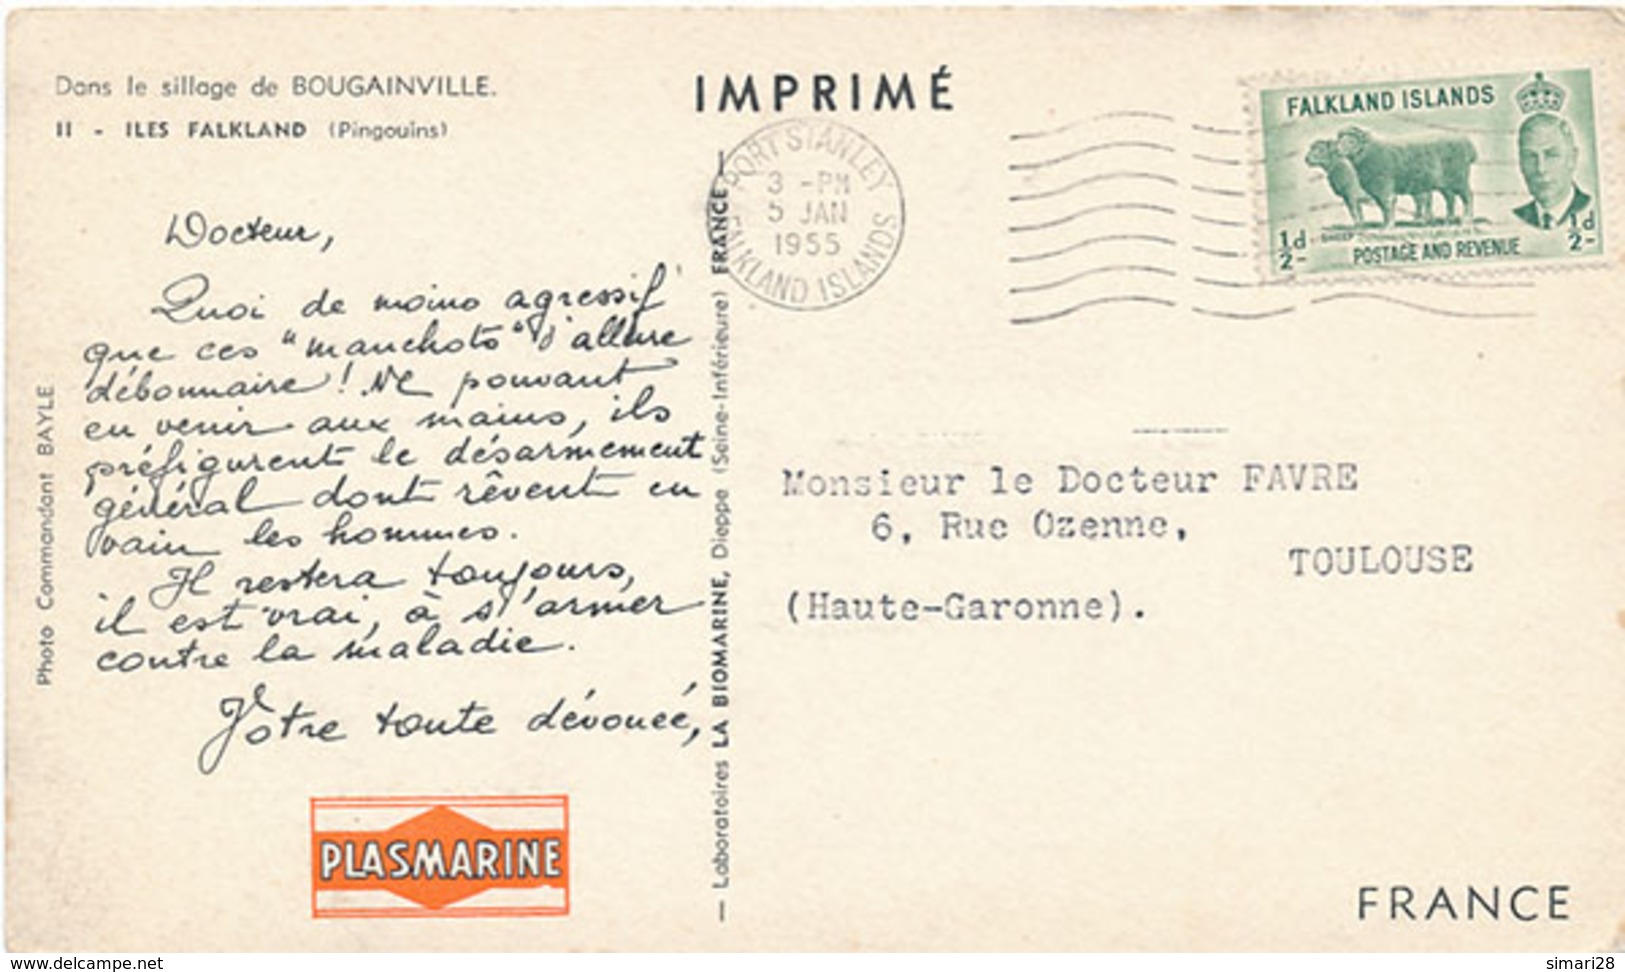 Dans le sillage de BOUGAINVILLE.
II - ILES FALKLAND (Pingouins)
IMPRIMÉ
PORT STANLEY
3 - PM
5 JAN
1955
FALKLAND ISLANDS
FALKLAND ISLANDS
SHEEP
½d
½d
POSTAGE AND REVENUE
Docteur,
Quoi de moins agressif
que ces "manchots" d'allure
débonnaire ! Ne pouvant
en venir aux mains, ils
préfigurent le désarmement
général dont rêvent en
vain les hommes.
Il restera toujours,
il est vrai, à s'armer
contre la maladie.
Votre toute dévouée,
PLASMARINE
Photo Commandant BAYLE
— Laboratoires LA BIOMARINE, Dieppe (Seine-Inférieure) FRANCE —
Monsieur le Docteur FAVRE
6, Rue Ozenne,
TOULOUSE
(Haute-Garonne).
FRANCE
www.delcampe.net
simari28